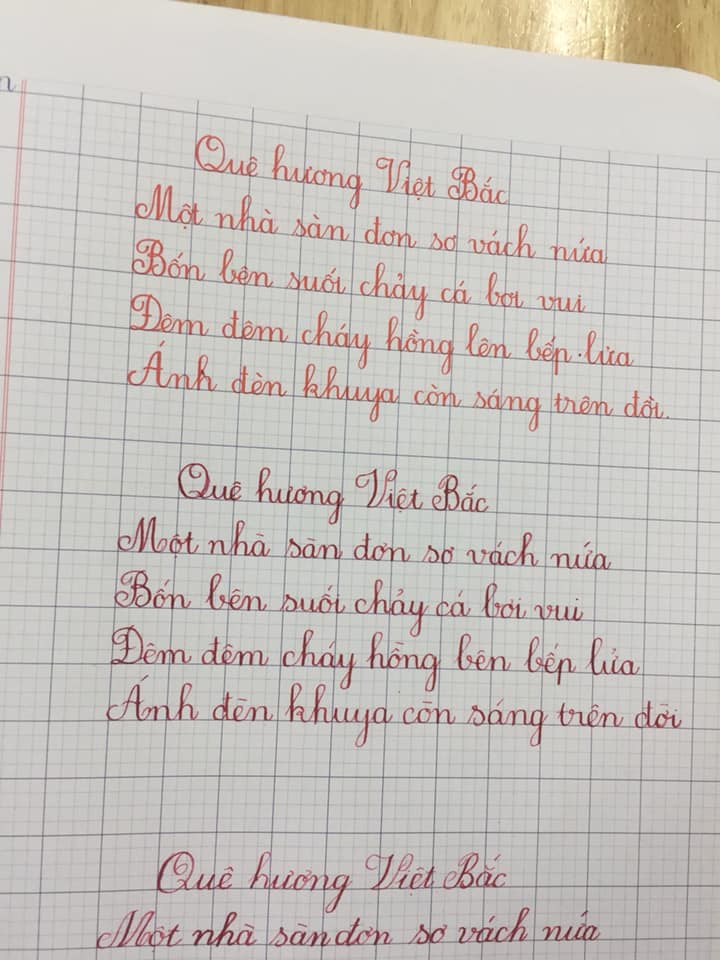 Quê hương Việt Bắc
Một nhà sàn đơn sơ vách nứa
Bốn bên suối chảy cá bơi vui
Đêm đêm cháy hồng lên bếp lửa
Ánh đèn khuya còn sáng trên đồi.
Quê hương Việt Bắc
Một nhà sàn đơn sơ vách nứa
Bốn bên suối chảy cá bơi vui
Đêm đêm cháy hồng bên bếp lửa
Ánh đèn khuya còn sáng trên đồi
Quê hương Việt Bắc
Một nhà sàn đơn sơ vách nứa